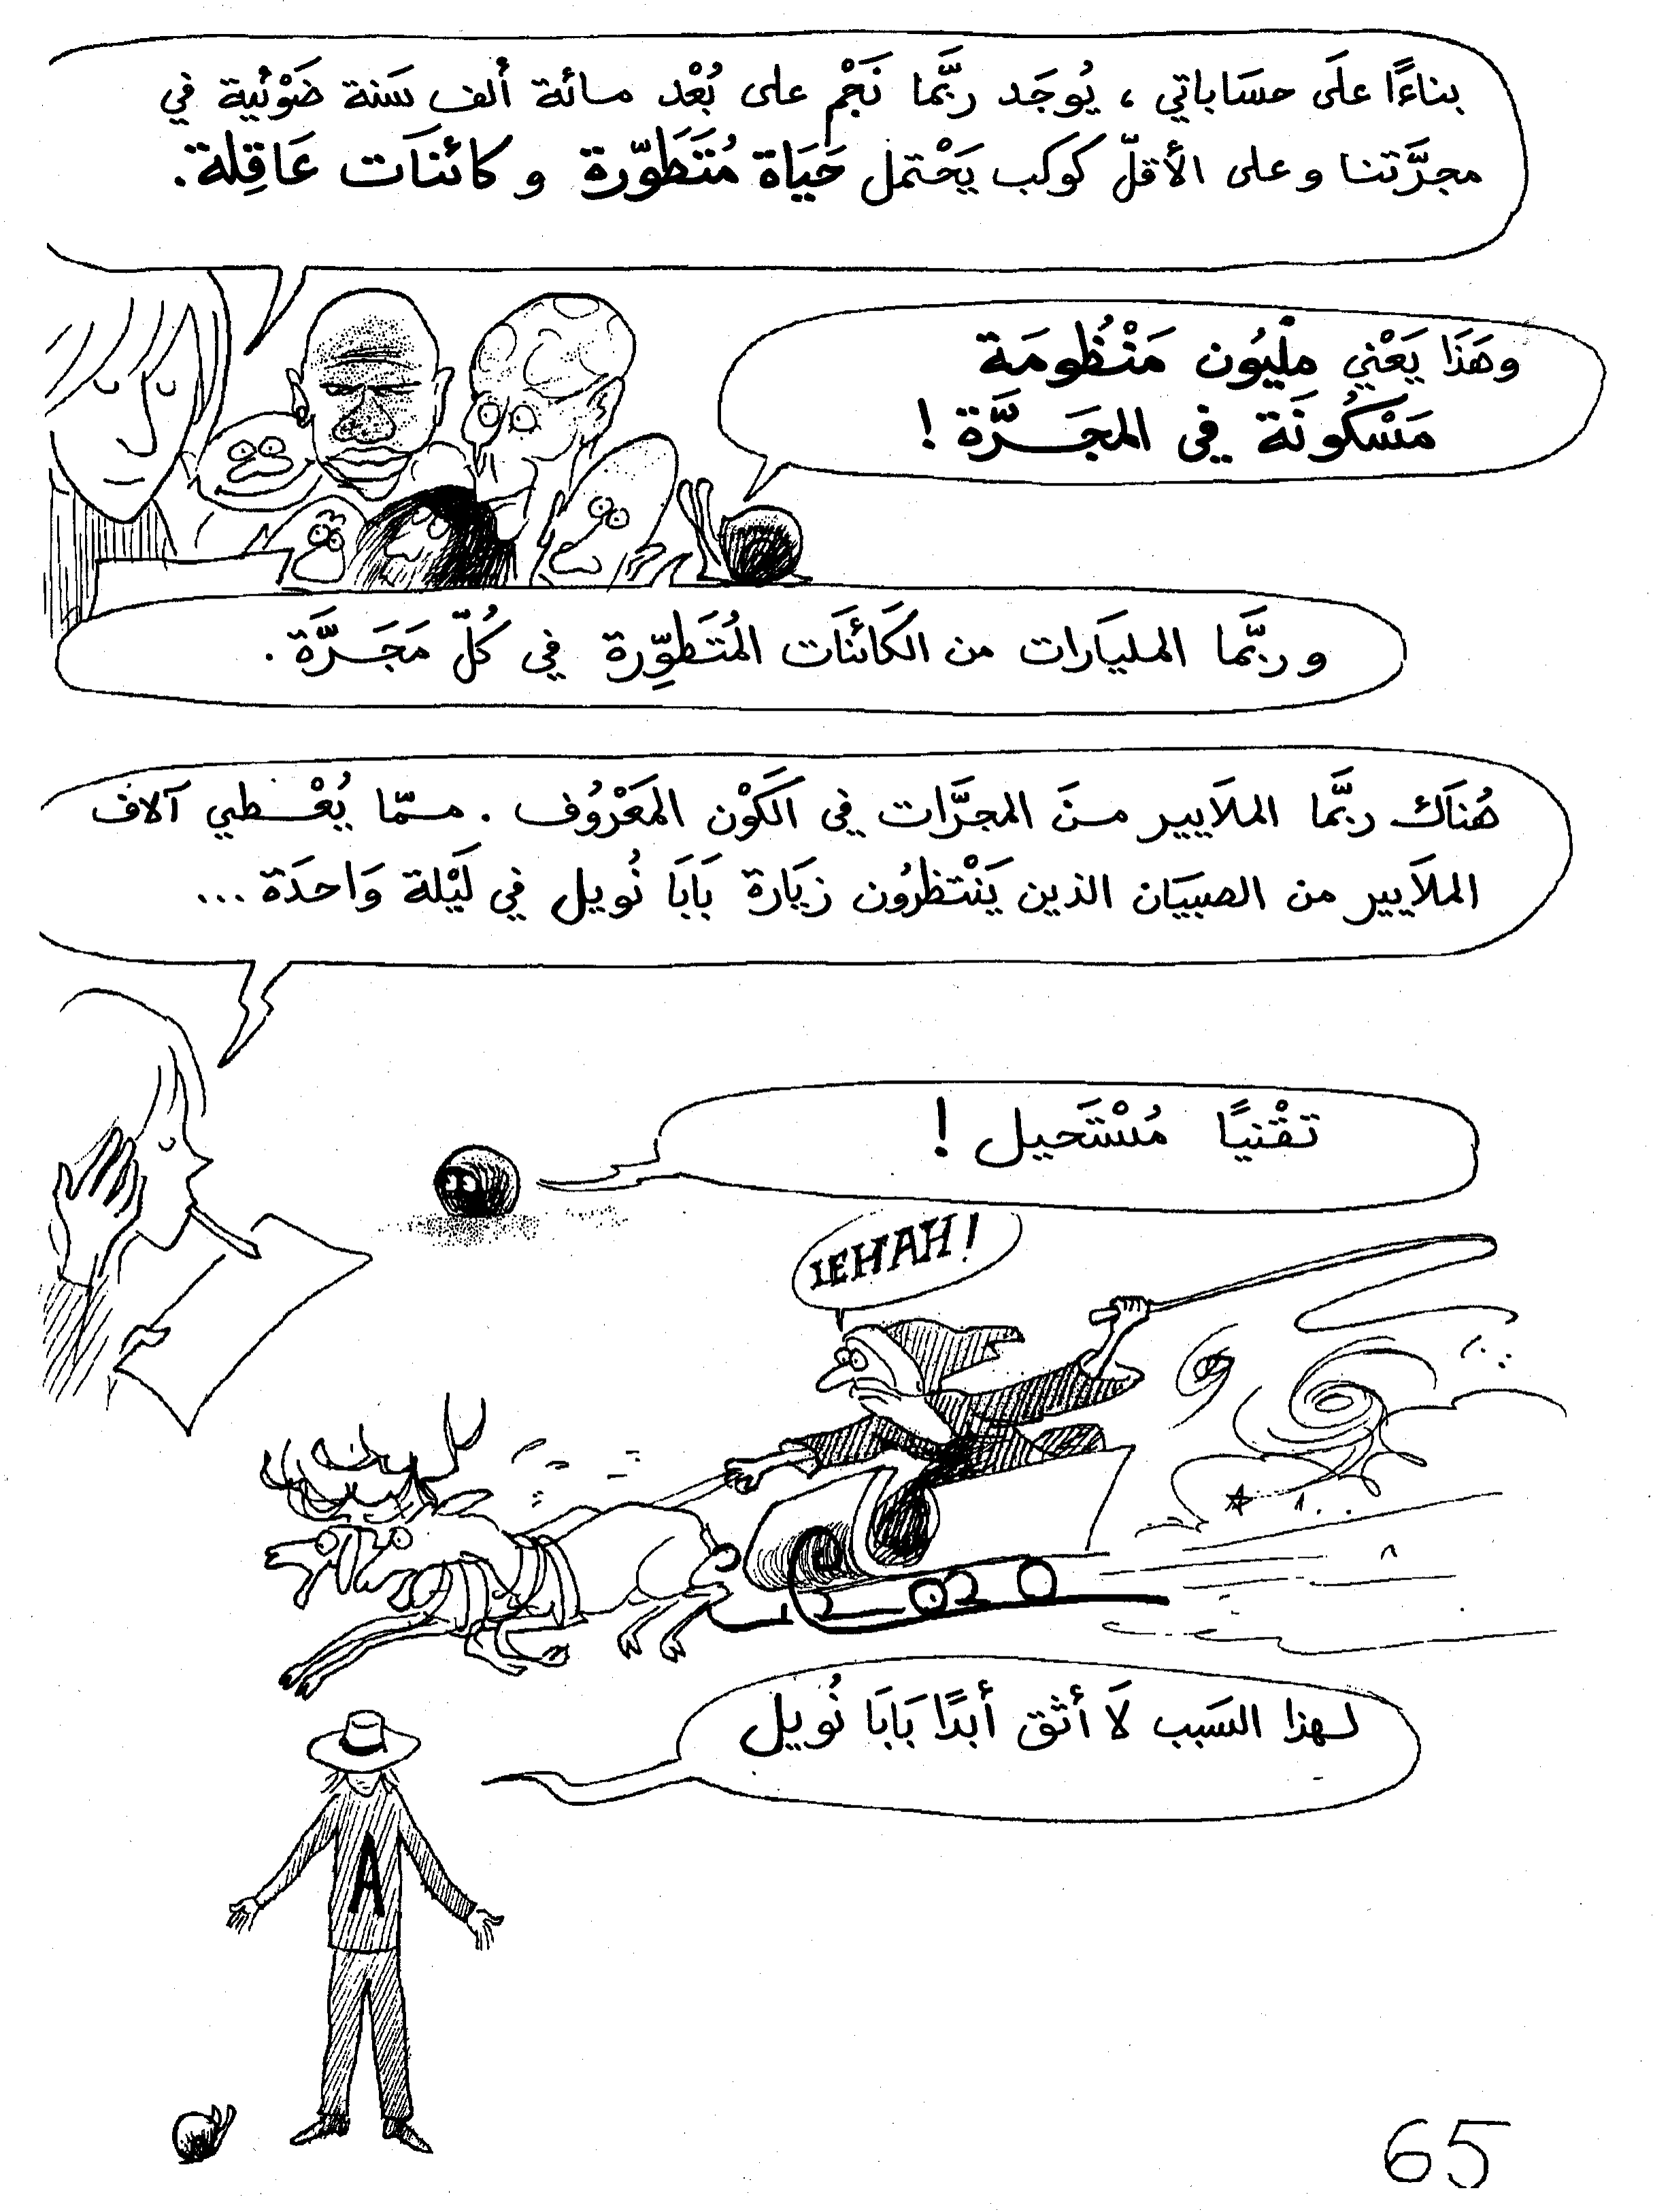 بناءًا علَى حسَاباتي ، يُوجَد ربَّما نَجْم على بُعْد مـائة ألف سَنة ضَوْئية في
مجرَّتنا و على الأقلّ كوكب يَحْتمل حَيَاة مُتَطَوّرة و كائنَات عَاقِلة .
وهَذَا يَعْني مِلْيُون مَنْظُومَة
مَسْكُونَة في المجَـرَّة !
و ربَّما المليَارات من الكَائنَات المُتَطوِّرة في كُلّ مَجَـرَّة .
هُنَاك ربَّما الملاَيير مـنَ المجرَّات في الكَوْن المَعْرُوف . مـمّا يُعْـطي آلاف
الملاَيير من الصبيَان الذين يَنْتظرُون زيَارة بَابَا نُويل في لَيْلة وَاحدَة ...
تقْنيًا مُسْتَحيل !
IEHAH!
لـهذا السَبب لاَ أثق أبدًا بَابَا نُويل
A
65